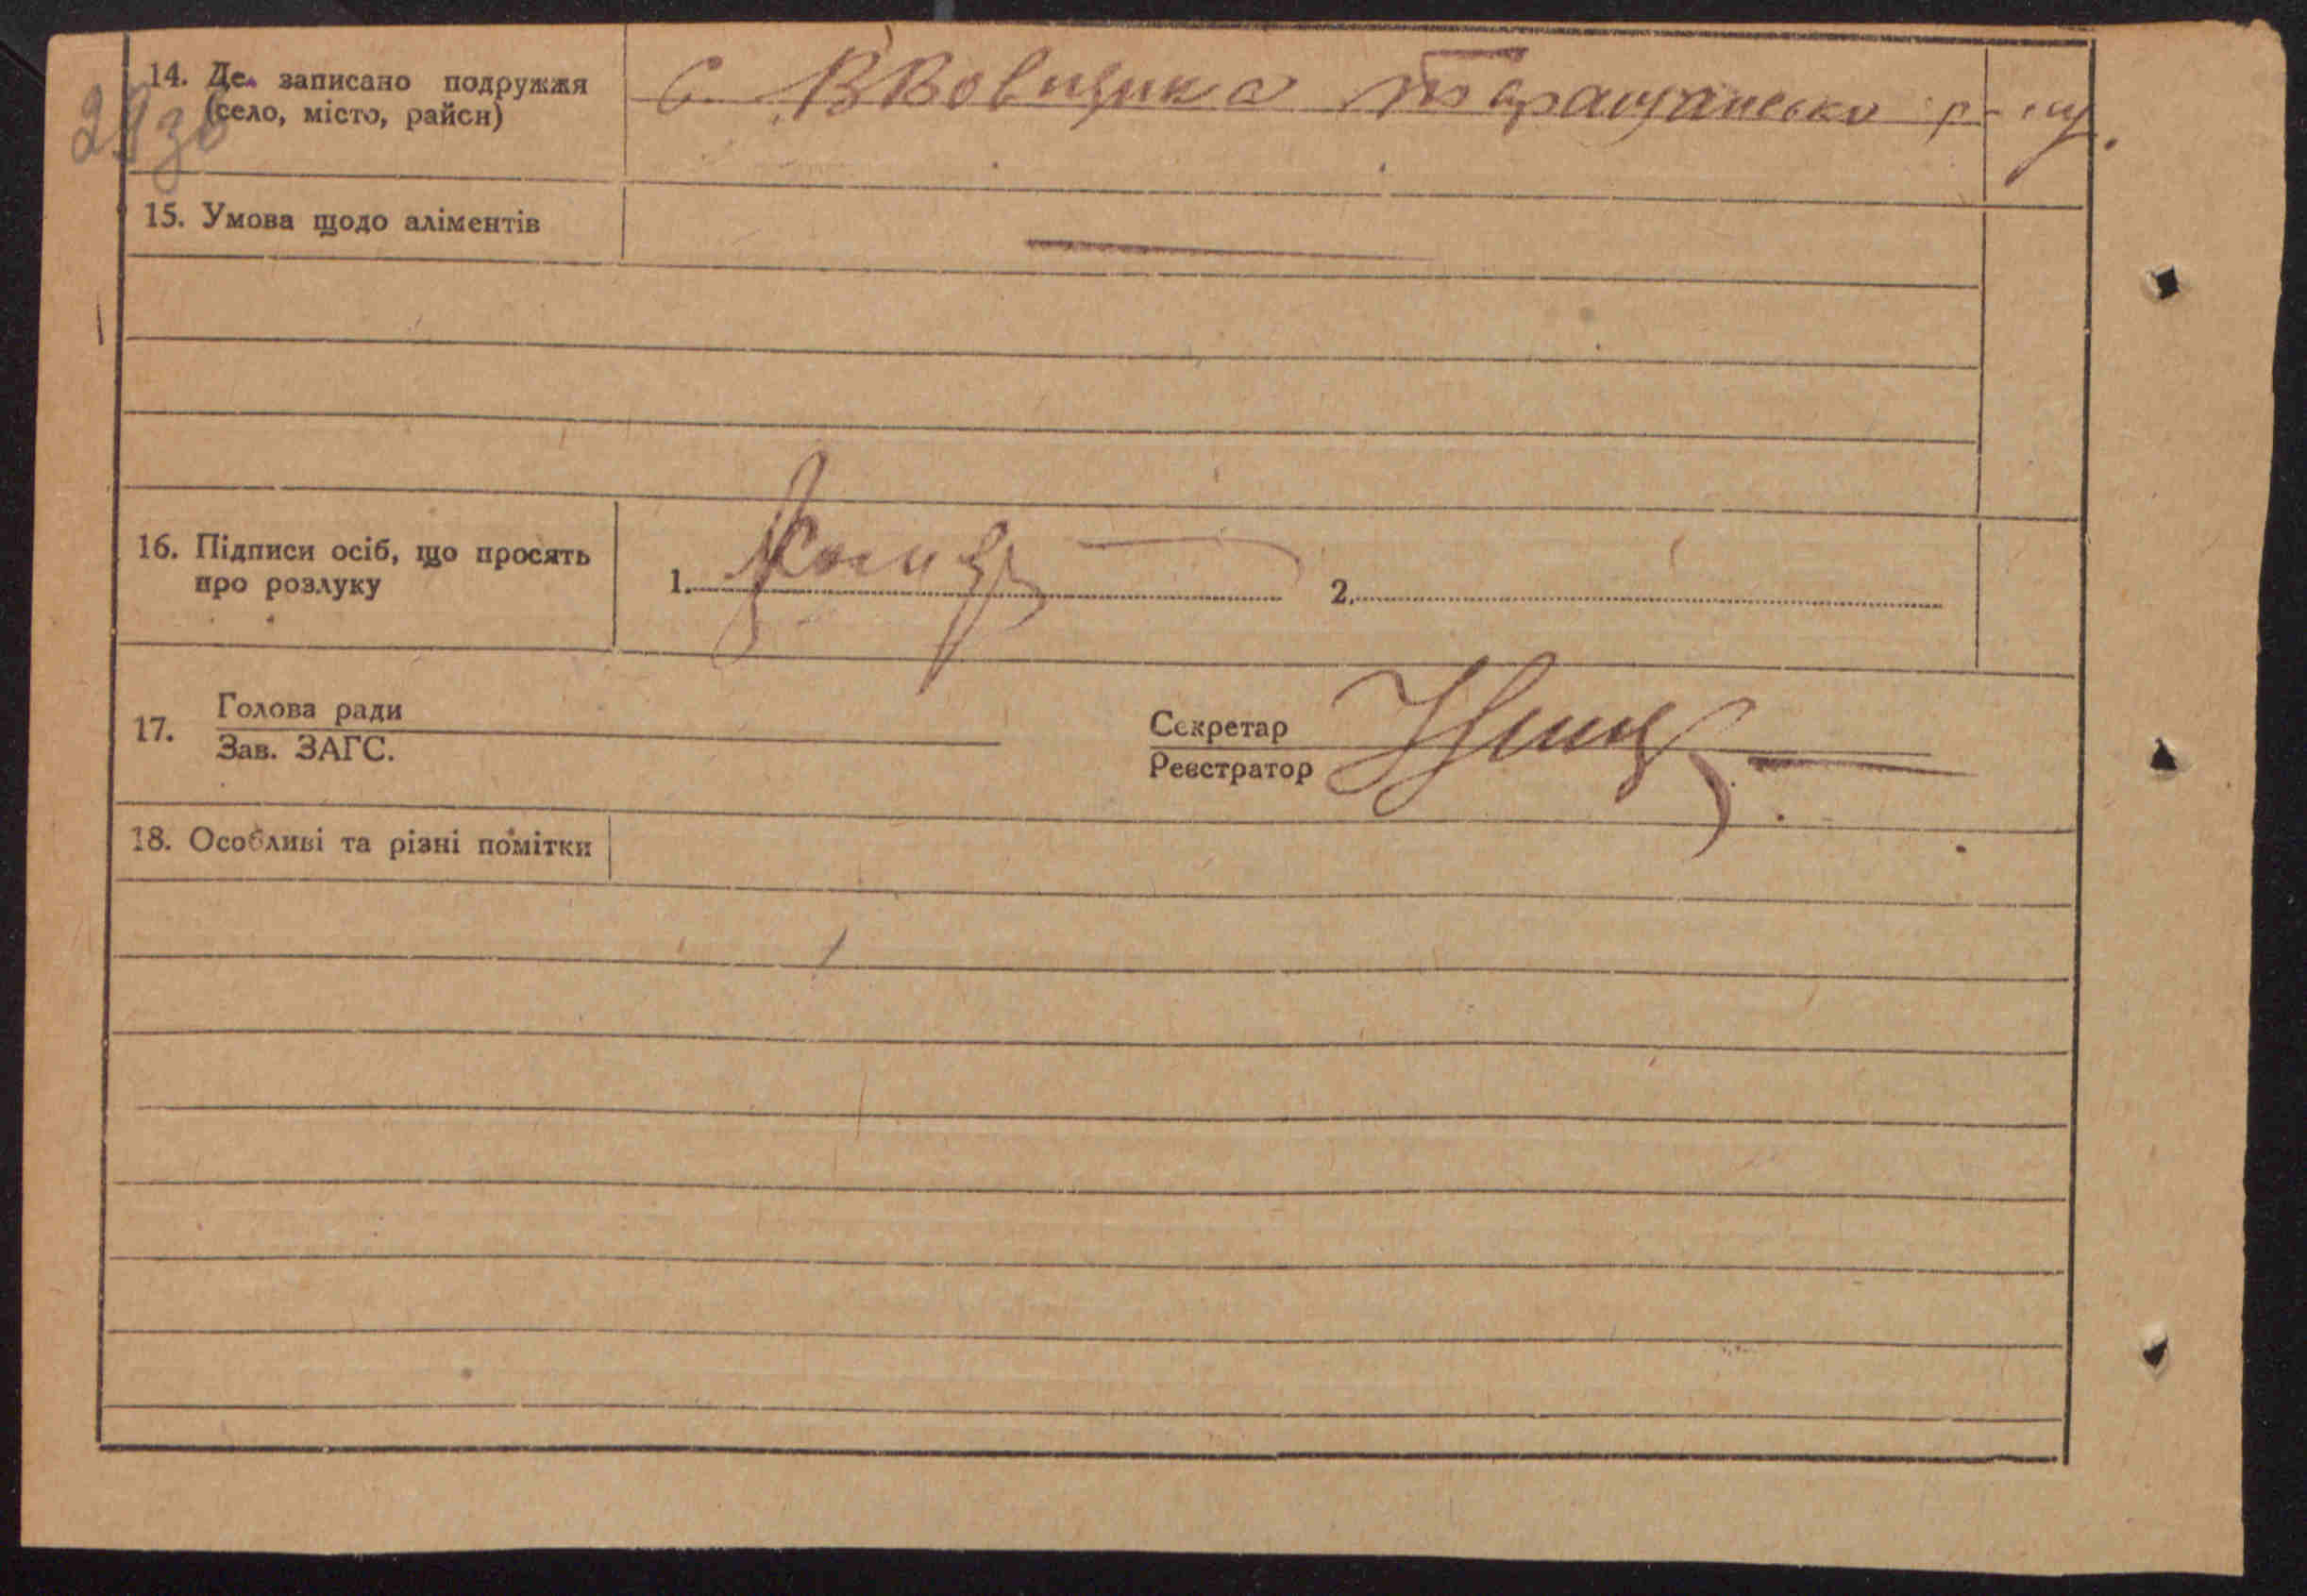 14. Де записано подружжя
(село, місто, район)
с. Таращансько р-ну.
29зв
15. Умова щодо аліментів
16. Підписи осіб, що просять
про розлуку
1. 2.
17. Голова ради
Зав. ЗАГС.
Секретар
Реєстратор
18. Особливі та різні помітки